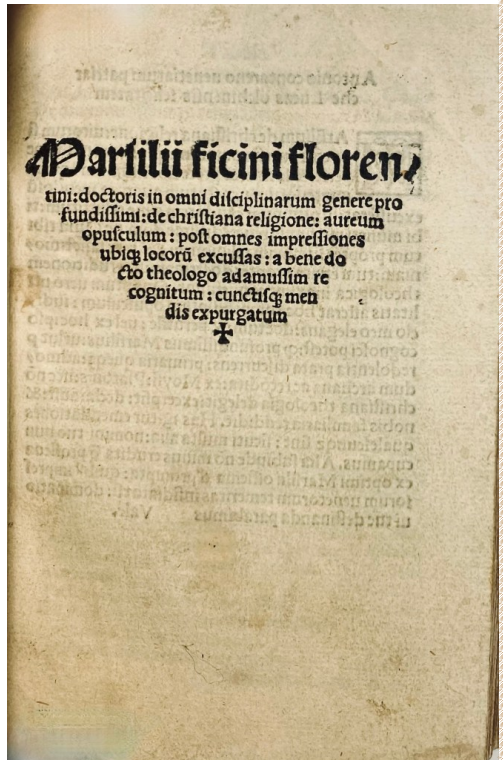 Marſilii ficini floren⸗
tini: doctoris in omni diſciplinarum genere pro
fundiſſimi: de chriſtiana religione: aureum
opuſculum : poſt omnes impreſſiones
ubiqꝫ locorū excuſſas : a bene do
cto theologo adamuſſim re
cognitum : cunctiſqꝫ men
dis expurgatum
✠